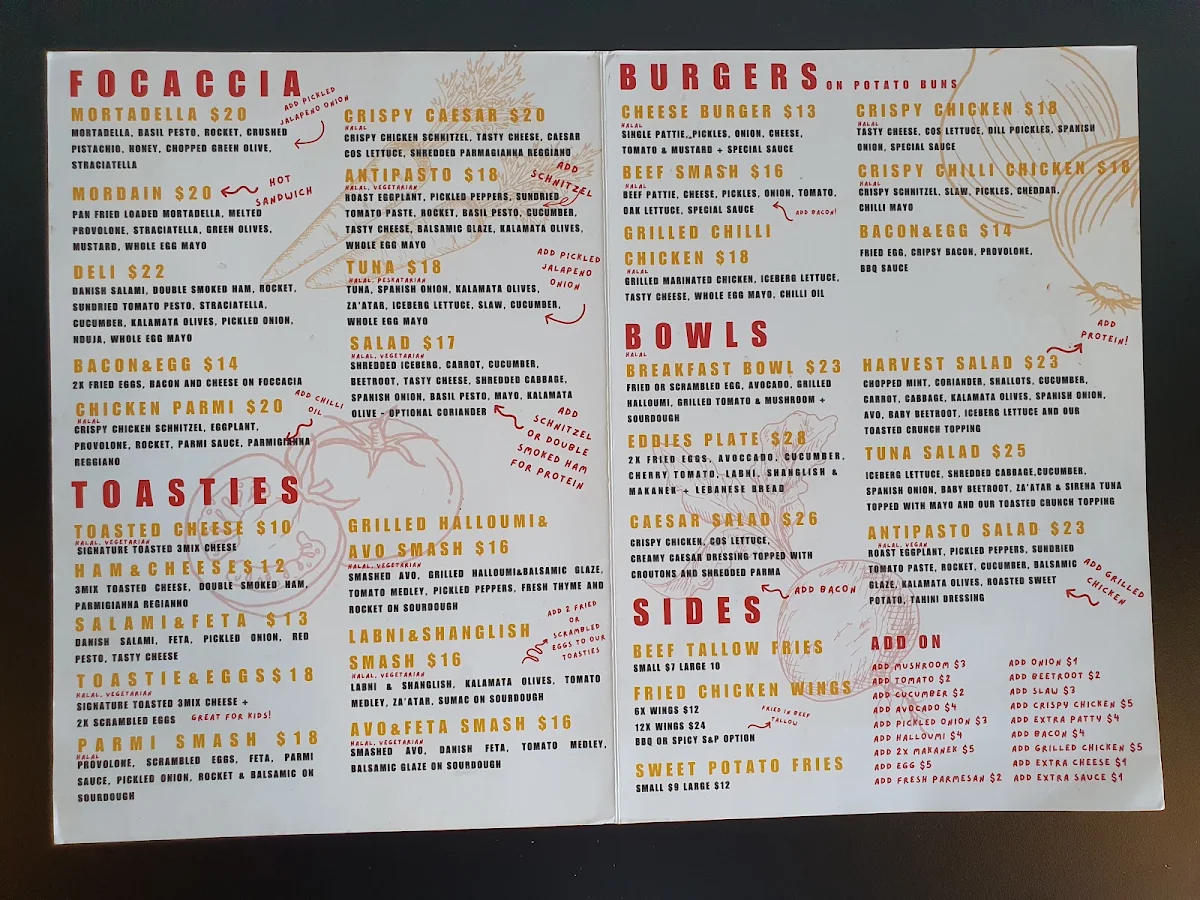 FOCACCIA
MORTADELLA $20
MORTADELLA, BASIL PESTO, ROCKET, CRUSHED
PISTACHIO, HONEY, CHOPPED GREEN OLIVE,
STRACIATELLA
ADD PICKLED
JALAPENO ONION
MORDAIN $20
HOT
SANDWICH
PAN FRIED LOADED MORTADELLA, MELTED
PROVOLONE, STRACIATELLA, GREEN OLIVES,
MUSTARD, WHOLE EGG MAYO
DELI $22
DANISH SALAMI, DOUBLE SMOKED HAM, ROCKET,
SUNDRIED TOMATO PESTO, STRACIATELLA,
CUCUMBER, KALAMATA OLIVES, PICKLED ONION,
NDUJA, WHOLE EGG MAYO
BACON&EGG $14
2X FRIED EGGS, BACON AND CHEESE ON FOCACCIA
CHICKEN PARMI $20
HALAL
CRISPY CHICKEN SCHNITZEL, EGGPLANT,
PROVOLONE, ROCKET, PARMI SAUCE, PARMIGIANNA
REGGIANO
ADD CHILLI
OIL
CRISPY CAESAR $20
HALAL
CRISPY CHICKEN SCHNITZEL, TASTY CHEESE, CAESAR
COS LETTUCE, SHREDDED PARMAGIANNA REGGIANO
ANTIPASTO $18
HALAL, VEGETARIAN
ROAST EGGPLANT, PICKLED PEPPERS, SUNDRIED
TOMATO PASTE, ROCKET, BASIL PESTO, CUCUMBER,
TASTY CHEESE, BALSAMIC GLAZE, KALAMATA OLIVES,
WHOLE EGG MAYO
ADD
SCHNITZEL
TUNA $18
HALAL, PESKATARIAN
TUNA, SPANISH ONION, KALAMATA OLIVES,
ZA'ATAR, ICEBERG LETTUCE, SLAW, CUCUMBER,
WHOLE EGG MAYO
ADD PICKLED
JALAPENO
ONION
SALAD $17
HALAL, VEGETARIAN
SHREDDED ICEBERG, CARROT, CUCUMBER,
BEETROOT, TASTY CHEESE, SHREDDED CABBAGE,
SPANISH ONION, BASIL PESTO, MAYO, KALAMATA
OLIVE - OPTIONAL CORIANDER
ADD
SCHNITZEL
OR DOUBLE
SMOKED HAM
FOR PROTEIN
TOASTIES
TOASTED CHEESE $10
HALAL, VEGETARIAN
SIGNATURE TOASTED 3MIX CHEESE
HAM&CHEESE$12
3MIX TOASTED CHEESE, DOUBLE SMOKED HAM,
PARMIGIANNA REGIANNO
SALAMI&FETA $13
DANISH SALAMI, FETA, PICKLED ONION, RED
PESTO, TASTY CHEESE
TOASTIE&EGGS$18
HALAL, VEGETARIAN
SIGNATURE TOASTED 3MIX CHEESE +
2X SCRAMBLED EGGS GREAT FOR KIDS!
PARMI SMASH $18
HALAL
PROVOLONE, SCRAMBLED EGGS, FETA, PARMI
SAUCE, PICKLED ONION, ROCKET & BALSAMIC ON
SOURDOUGH
GRILLED HALLOUMI&
AVO SMASH $16
HALAL, VEGETARIAN
SMASHED AVO, GRILLED HALLOUMI&BALSAMIC GLAZE,
TOMATO MEDLEY, PICKLED PEPPERS, FRESH THYME AND
ROCKET ON SOURDOUGH
LABNI&SHANGLISH
SMASH $16
HALAL, VEGETARIAN
LABNI & SHANGLISH, KALAMATA OLIVES, TOMATO
MEDLEY, ZA'ATAR, SUMAC ON SOURDOUGH
ADD 2 FRIED
OR
SCRAMBLED
EGGS TO OUR
TOASTIES
AVO&FETA SMASH $16
HALAL, VEGETARIAN
SMASHED AVO, DANISH FETA, TOMATO MEDLEY,
BALSAMIC GLAZE ON SOURDOUGH
BURGERS ON POTATO BUNS
CHEESE BURGER $13
HALAL
SINGLE PATTIE, PICKLES, ONION, CHEESE,
TOMATO & MUSTARD + SPECIAL SAUCE
BEEF SMASH $16
HALAL
BEEF PATTIE, CHEESE, PICKLES, ONION, TOMATO,
OAK LETTUCE, SPECIAL SAUCE
ADD BACON!
GRILLED CHILLI
CHICKEN $18
HALAL
GRILLED MARINATED CHICKEN, ICEBERG LETTUCE,
TASTY CHEESE, WHOLE EGG MAYO, CHILLI OIL
CRISPY CHICKEN $18
HALAL
TASTY CHEESE, COS LETTUCE, DILL POICKLES, SPANISH
ONION, SPECIAL SAUCE
CRISPY CHILLI CHICKEN $18
HALAL
CRISPY SCHNITZEL, SLAW, PICKLES, CHEDDAR,
CHILLI MAYO
BACON&EGG $14
FRIED EGG, CRIPSY BACON, PROVOLONE,
BBQ SAUCE
BOWLS
HALAL
BREAKFAST BOWL $23
FRIED OR SCRAMBLED EGG, AVOCADO, GRILLED
HALLOUMI, GRILLED TOMATO & MUSHROOM +
SOURDOUGH
EDDIES PLATE $28
2X FRIED EGGS, AVOCCADO, CUCUMBER,
CHERRY TOMATO, LABNI, SHANGLISH &
MAKANEK + LEBANESE BREAD
CAESAR SALAD $26
CRISPY CHICKEN, COS LETTUCE,
CREAMY CAESAR DRESSING TOPPED WITH
CROUTONS AND SHREDDED PARMA
ADD BACON
ADD
PROTEIN!
HARVEST SALAD $23
CHOPPED MINT, CORIANDER, SHALLOTS, CUCUMBER,
CARROT, CABBAGE, KALAMATA OLIVES, SPANISH ONION,
AVO, BABY BEETROOT, ICEBERG LETTUCE AND OUR
TOASTED CRUNCH TOPPING
TUNA SALAD $25
ICEBERG LETTUCE, SHREDDED CABBAGE,CUCUMBER,
SPANISH ONION, BABY BEETROOT, ZA'ATAR & SIRENA TUNA
TOPPED WITH MAYO AND OUR TOASTED CRUNCH TOPPING
ANTIPASTO SALAD $23
HALAL, VEGAN
ROAST EGGPLANT, PICKLED PEPPERS, SUNDRIED
TOMATO PASTE, ROCKET, CUCUMBER, BALSAMIC
GLAZE, KALAMATA OLIVES, ROASTED SWEET
POTATO, TAHINI DRESSING
ADD GRILLED
CHICKEN
SIDES
BEEF TALLOW FRIES
SMALL $7 LARGE 10
FRIED CHICKEN WINGS
6X WINGS $12
12X WINGS $24
BBQ OR SPICY S&P OPTION
FRIED IN BEEF
TALLOW
SWEET POTATO FRIES
SMALL $9 LARGE $12
ADD ON
ADD MUSHROOM $3
ADD TOMATO $2
ADD CUCUMBER $2
ADD AVOCADO $4
ADD PICKLED ONION $3
ADD HALLOUMI $4
ADD 2X MAKANEK $5
ADD EGG $5
ADD FRESH PARMESAN $2
ADD ONION $1
ADD BEETROOT $2
ADD SLAW $3
ADD CRISPY CHICKEN $5
ADD EXTRA PATTY $4
ADD BACON $4
ADD GRILLED CHICKEN $5
ADD EXTRA CHEESE $1
ADD EXTRA SAUCE $1